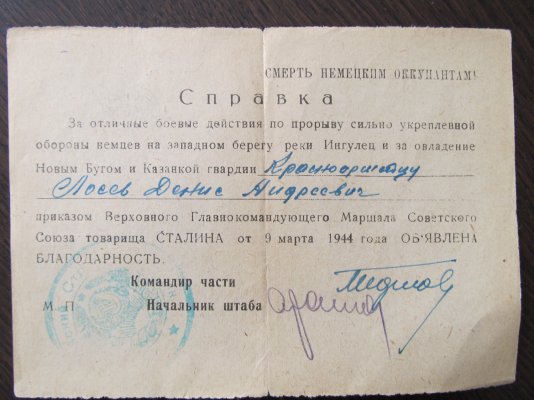 СМЕРТЬ НЕМЕЦКИМ ОККУПАНТАМ!
Справка
За отличные боевые действия по прорыву сильно укрепленной
обороны немцев на западном берегу реки Ингулец и за овладение
Новым Бугом и Казанкой гвардии Красноармейцу
Лосев Денис Андреевич
приказом Верховного Главнокомандующего Маршала Советского
Союза товарища СТАЛИНА от 9 марта 1944 года ОБ'ЯВЛЕНА
БЛАГОДАРНОСТЬ.
Командир части
М. П. Начальник штаба